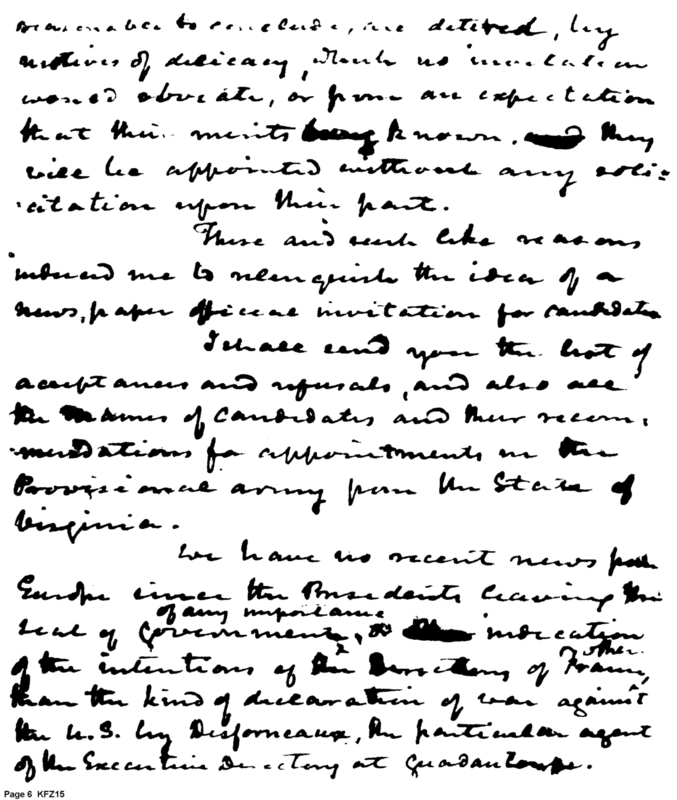 reasonable to conclude, are detered, by
motives of delicacy, which no invitation
would obviate, or from an expectation
that their merits being known, and they
will be appointed without any soli=
citation upon their part.
These and such like reasons
induced me to relinquish the idea of a
news,paper official invitation for candidates
I shall send you the list of
acceptances and refusals, and also all
the names of Candidates and their recom:
mendations for appointments in the
Provisional army from the State of
Virginia.
We have no recent news from
Europe since the Presidents leaving the
of any importance
seal of Government, or indication
other
of the intentions of the Directory of France,
than the kind of declaration of war against
the U.S. by Desforneaux, the particular agent
of the Executive Directory at Guadaloupe.
Page 6 KFZ15